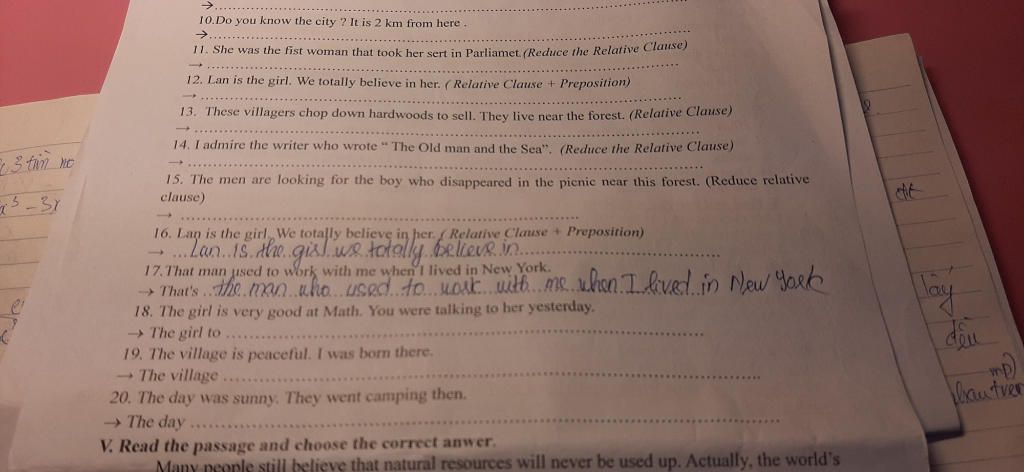 → ....................
10.Do you know the city ? It is 2 km from here .
→ ....................
11. She was the fist woman that took her sert in Parliamet.(Reduce the Relative Clause)
→ ....................
12. Lan is the girl. We totally believe in her. ( Relative Clause + Preposition)
→ ....................
13. These villagers chop down hardwoods to sell. They live near the forest. (Relative Clause)
→ ....................
14. I admire the writer who wrote “ The Old man and the Sea”. (Reduce the Relative Clause)
→ ....................
15. The men are looking for the boy who disappeared in the picnic near this forest. (Reduce relative
clause)
→ ....................
16. Lan is the girl. We totally believe in her. ( Relative Clause + Preposition)
→ Lan is the girl we totally believe in
17.That man used to work with me when I lived in New York.
→ That's the man who used to work with me when I lived in New York
18. The girl is very good at Math. You were talking to her yesterday.
→ The girl to ....................
19. The village is peaceful. I was born there.
→ The village ....................
20. The day was sunny. They went camping then.
→ The day ....................
V. Read the passage and choose the correct anwer.
Many people still believe that natural resources will never be used up. Actually, the world's
3 tìm
- 3x
lấy
đều